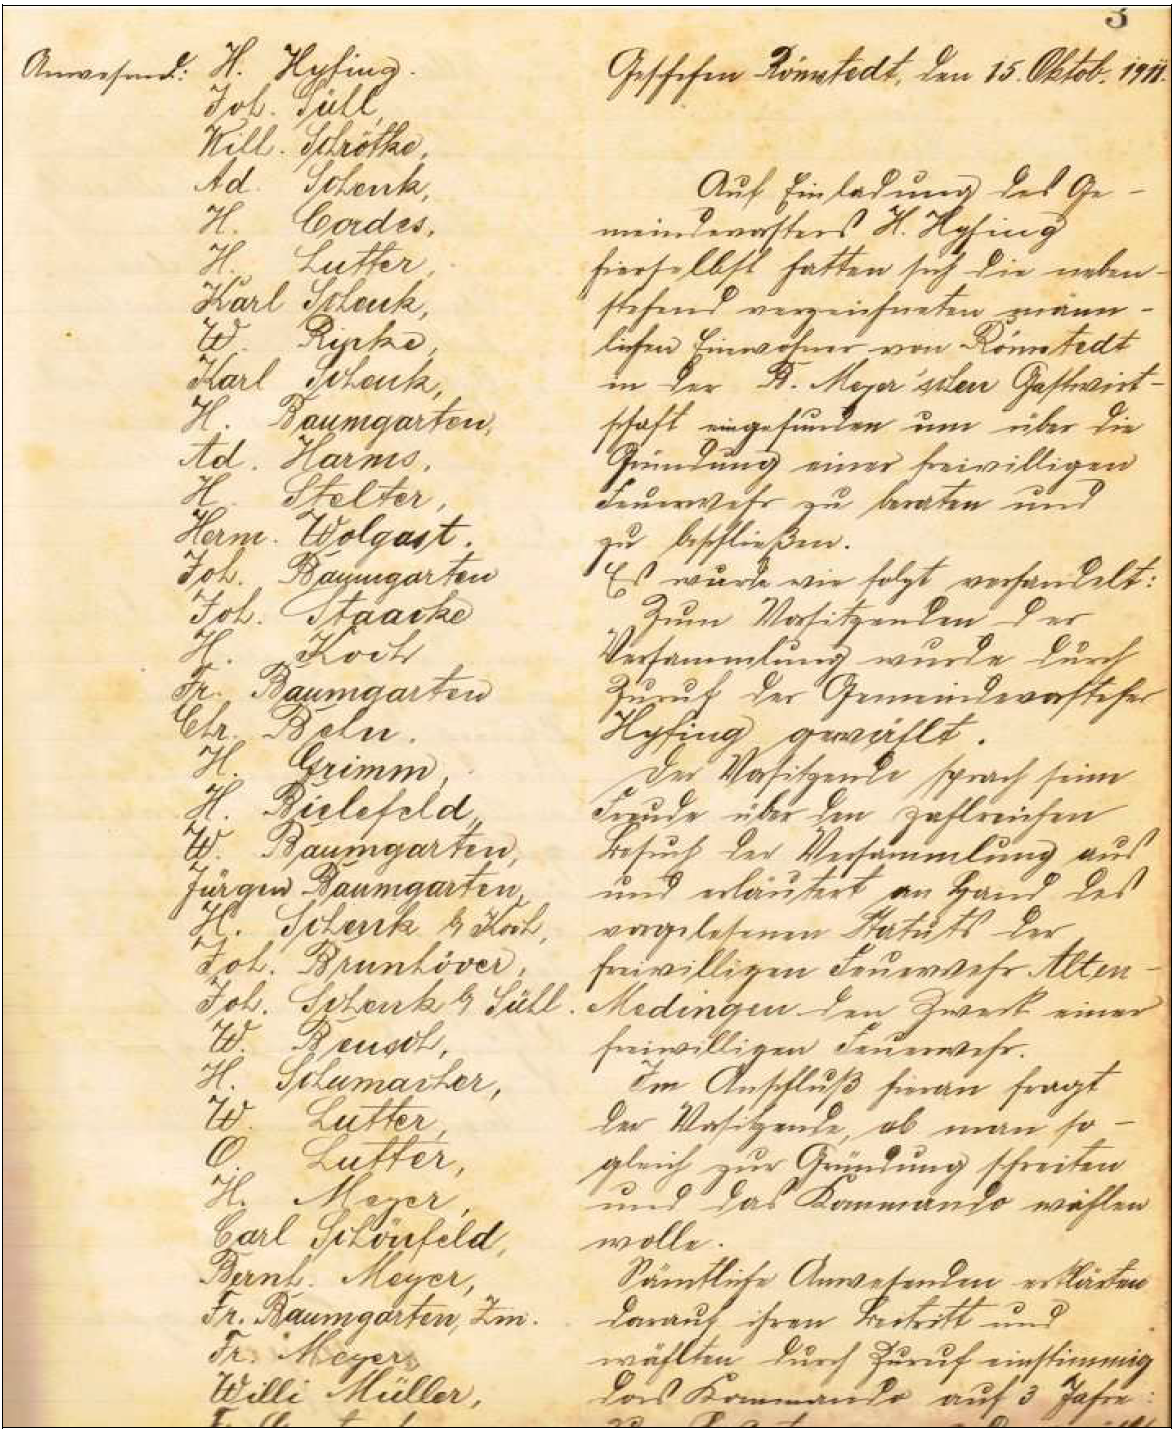 3
Anwesend: H. Hyfing.
Joh. Süll,
Will. Schrötke,
Ad. Schenk,
H. Cordes,
H. Lutter,
Karl Schenk,
W. Ripke,
Karl Schenk,
H. Baumgarten,
Ad. Harms,
H. Stelter,
Herm. Wolgast.
Joh. Baumgarten
Joh. Staacke
H. Koch
Fr. Baumgarten
Chr. Behn.
H. Grimm,
H. Bielefeld,
W. Baumgarten,
Jürgen Baumgarten,
H. Schenk b/ Koch,
Joh. Brunhöver,
Joh. Schenk b/ Süll.
W. Beusch,
H. Schumacher,
W. Lutter,
O. Lutter,
H. Meyer,
Carl Schönfeld,
Bernh. Meyer,
Fr. Baumgarten, Zm.
Fr. Meyer,
Willi Müller,
Geschehen Römstedt, den 15. Oktob. 1911.
Auf Einladung des Ge-
meindevorstehers H. Hyfing
hierselbst hatten sich die neben-
stehend verzeichneten männ-
lichen Einwohner von Römstedt
in der Fr. Meyer'schen Gastwirt-
schaft eingefunden um über die
Gründung einer freiwilligen
Feuerwehr zu beraten und
zu beschließen.
Es wurde wie folgt verhandelt:
Zum Vorsitzenden der
Versammlung wurde durch
Zuruf der Gemeindevorsteher
Hyfing gewählt.
Der Vorsitzende sprach seine
Freude über den zahlreichen
Besuch der Versammlung aus
und erläutert an Hand des
vorgelesenen Statuts der
freiwilligen Feuerwehr Alten-
Medingen den Zweck einer
freiwilligen Feuerwehr.
Im Anschluß hieran fragt
der Vorsitzende, ob man so-
gleich zur Gründung schreiten
und das Kommando wählen
wolle.
Sämtliche Anwesenden erklärten
darauf ihren Beitritt und
wählten durch Zuruf einstimmig
das Kommando auf 3 Jahre: